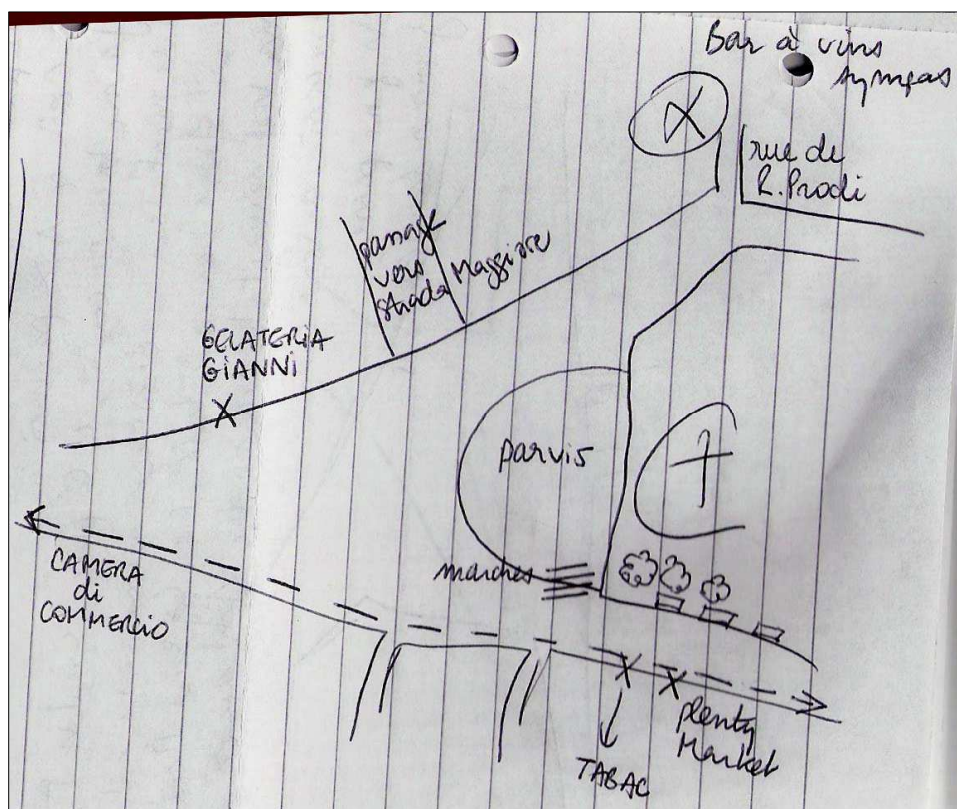 Bar à vins
sympas
rue de
R. Prodi
passage
vers
strada Maggiore
GELATERIA
GIANNI
parvis
marches
CAMERA
di
COMMERCIO
plenty
Market
TABAC